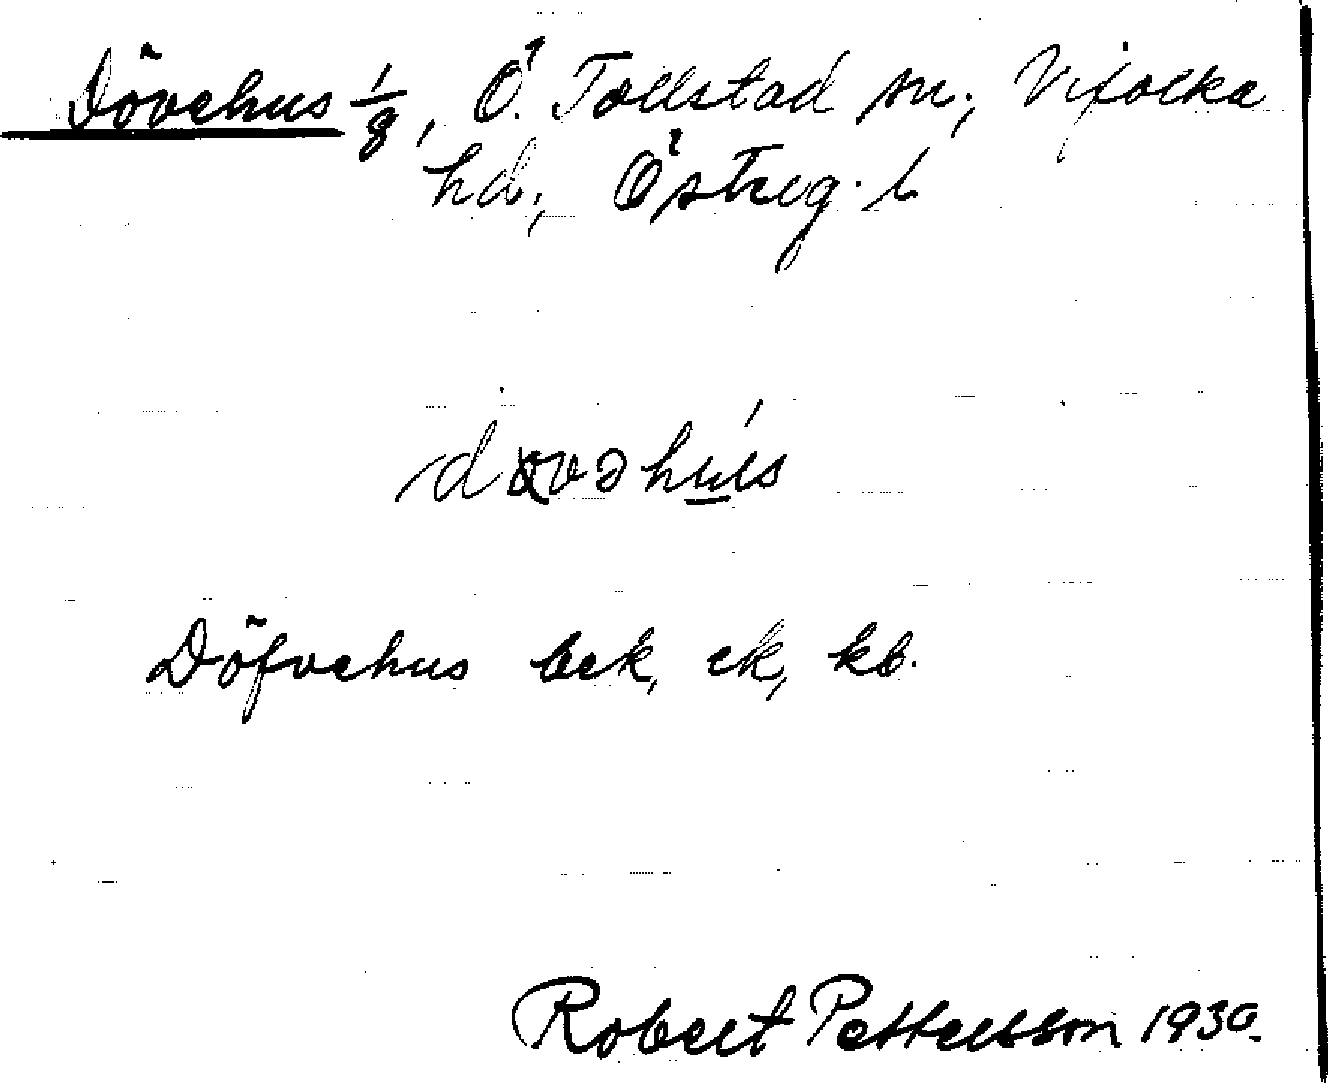 Dövehus 1/8, Ö. Tollstad sn; Vifolka
hd; Östeg. l
Döfvehus bek, ek, kb.
Robert Pettersson 1930.